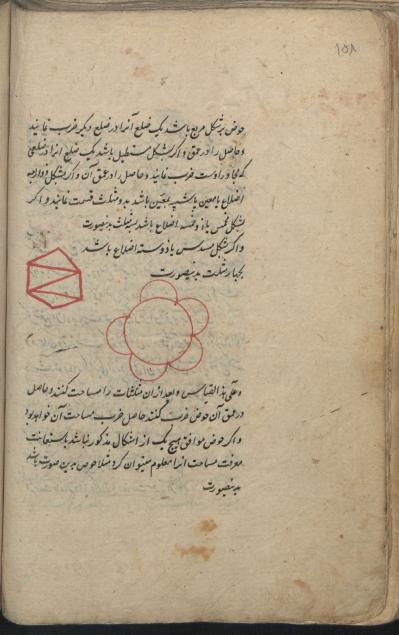 ۱۵۸
حوض بر شکل مربع باشد یک ضلع آنرا در ضلع دیگر ضرب نمایند
و حاصل را در عمق و اگر شکل مستطیل باشد یک ضلع آنرا در ضلعی
که مجاور اوست ضرب نمایند و حاصل را در عمق آن و اگر شکل ذو اربعه
اضلاع یا معین یا شبیه بمعین باشد بدو مثلث قسمت نمایند و اگر
بشکل مخمس یا ذو خمسه اضلاع باشد بسه مثلث بدینصورت
و اگر شکل مسدس یا ذو سته اضلاع باشد
بچهار مثلث بدینصورت
و علی هذا القیاس و بعد ازان مثلثات را مساحت کنند و حاصل
در عمق آن حوض ضرب کنند حاصل ضرب مساحت آن خواهد بود
و اگر حوض موافق هیچ یک از اشکال مذکور نباشد باستعانت
معرفت مساحت آنها معلوم میتوان کرد مثلا حوض بدین صورت باشد
بدینصورت